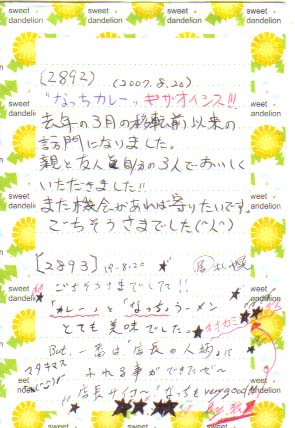 sweet dandelion
sweet dandelion
sweet dandelion
sweet dandelion
(2892) (2007.8.20)
"なっちカレー"、やサオイシス!!
去年の3月の移転前以来の
訪門になりました。
親と友人と自分の3人でおいしく
いただきました!!
また機会があれば寄りたいです。
ごちそうさまでした(^人^)
[2893] 19.8.20 札幌
ごちそうさまでした!!
「カレー」と「なっち」ラーメン
とても美味でした。
But, 一番は「店長の人柄」に
ふれる事ができたぜ~
店長サイコ~ なっちもvery good